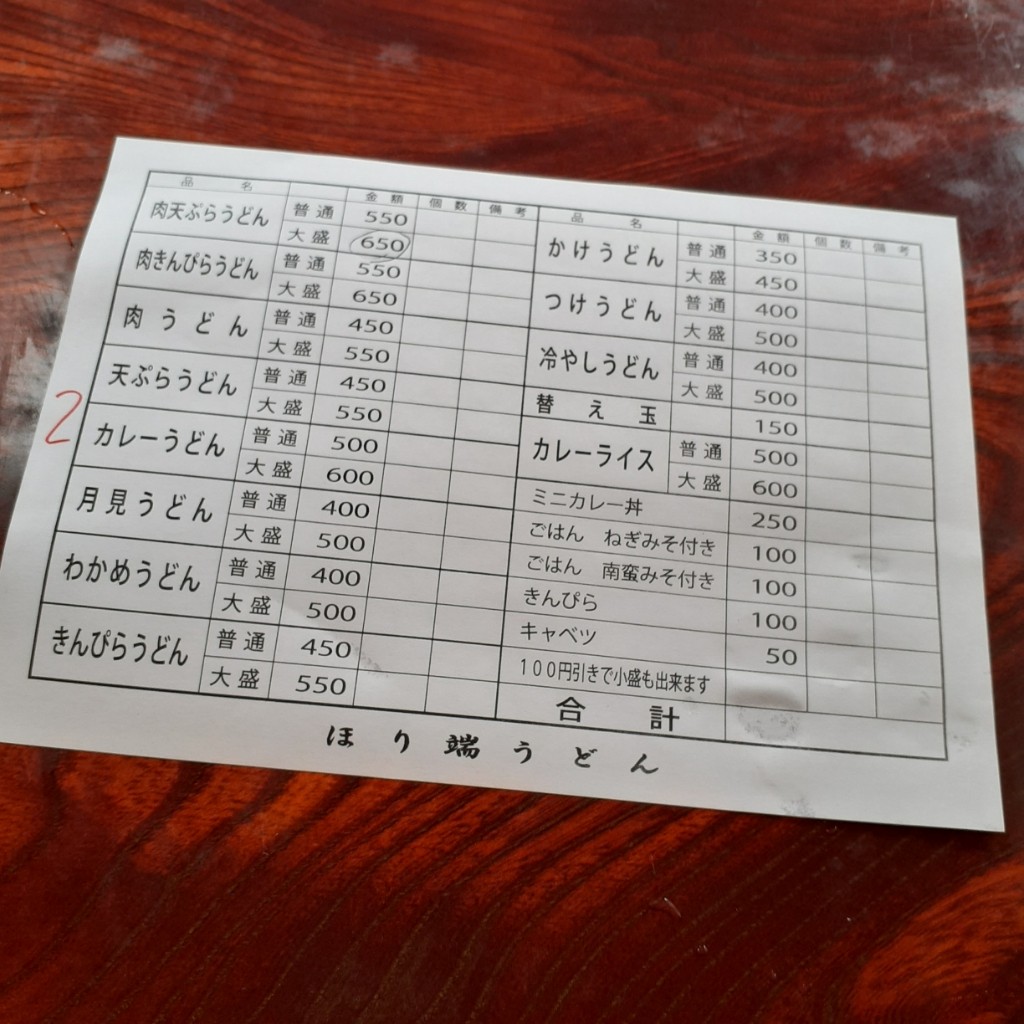 品 名 金 額 個 数 備 考
肉天ぷらうどん 普通 550
大盛 650
肉きんぴらうどん 普通 550
大盛 650
肉うどん 普通 450
大盛 550
天ぷらうどん 普通 450
大盛 550
2
カレーうどん 普通 500
大盛 600
月見うどん 普通 400
大盛 500
わかめうどん 普通 400
大盛 500
きんぴらうどん 普通 450
大盛 550
品 名 金 額 個 数 備 考
かけうどん 普通 350
大盛 450
つけうどん 普通 400
大盛 500
冷やしうどん 普通 400
大盛 500
替え玉 150
カレーライス 普通 500
大盛 600
ミニカレー丼 250
ごはん ねぎみそ付き 100
ごはん 南蛮みそ付き 100
きんぴら 100
キャベツ 50
100円引きで小盛も出来ます
合 計
ほり端うどん